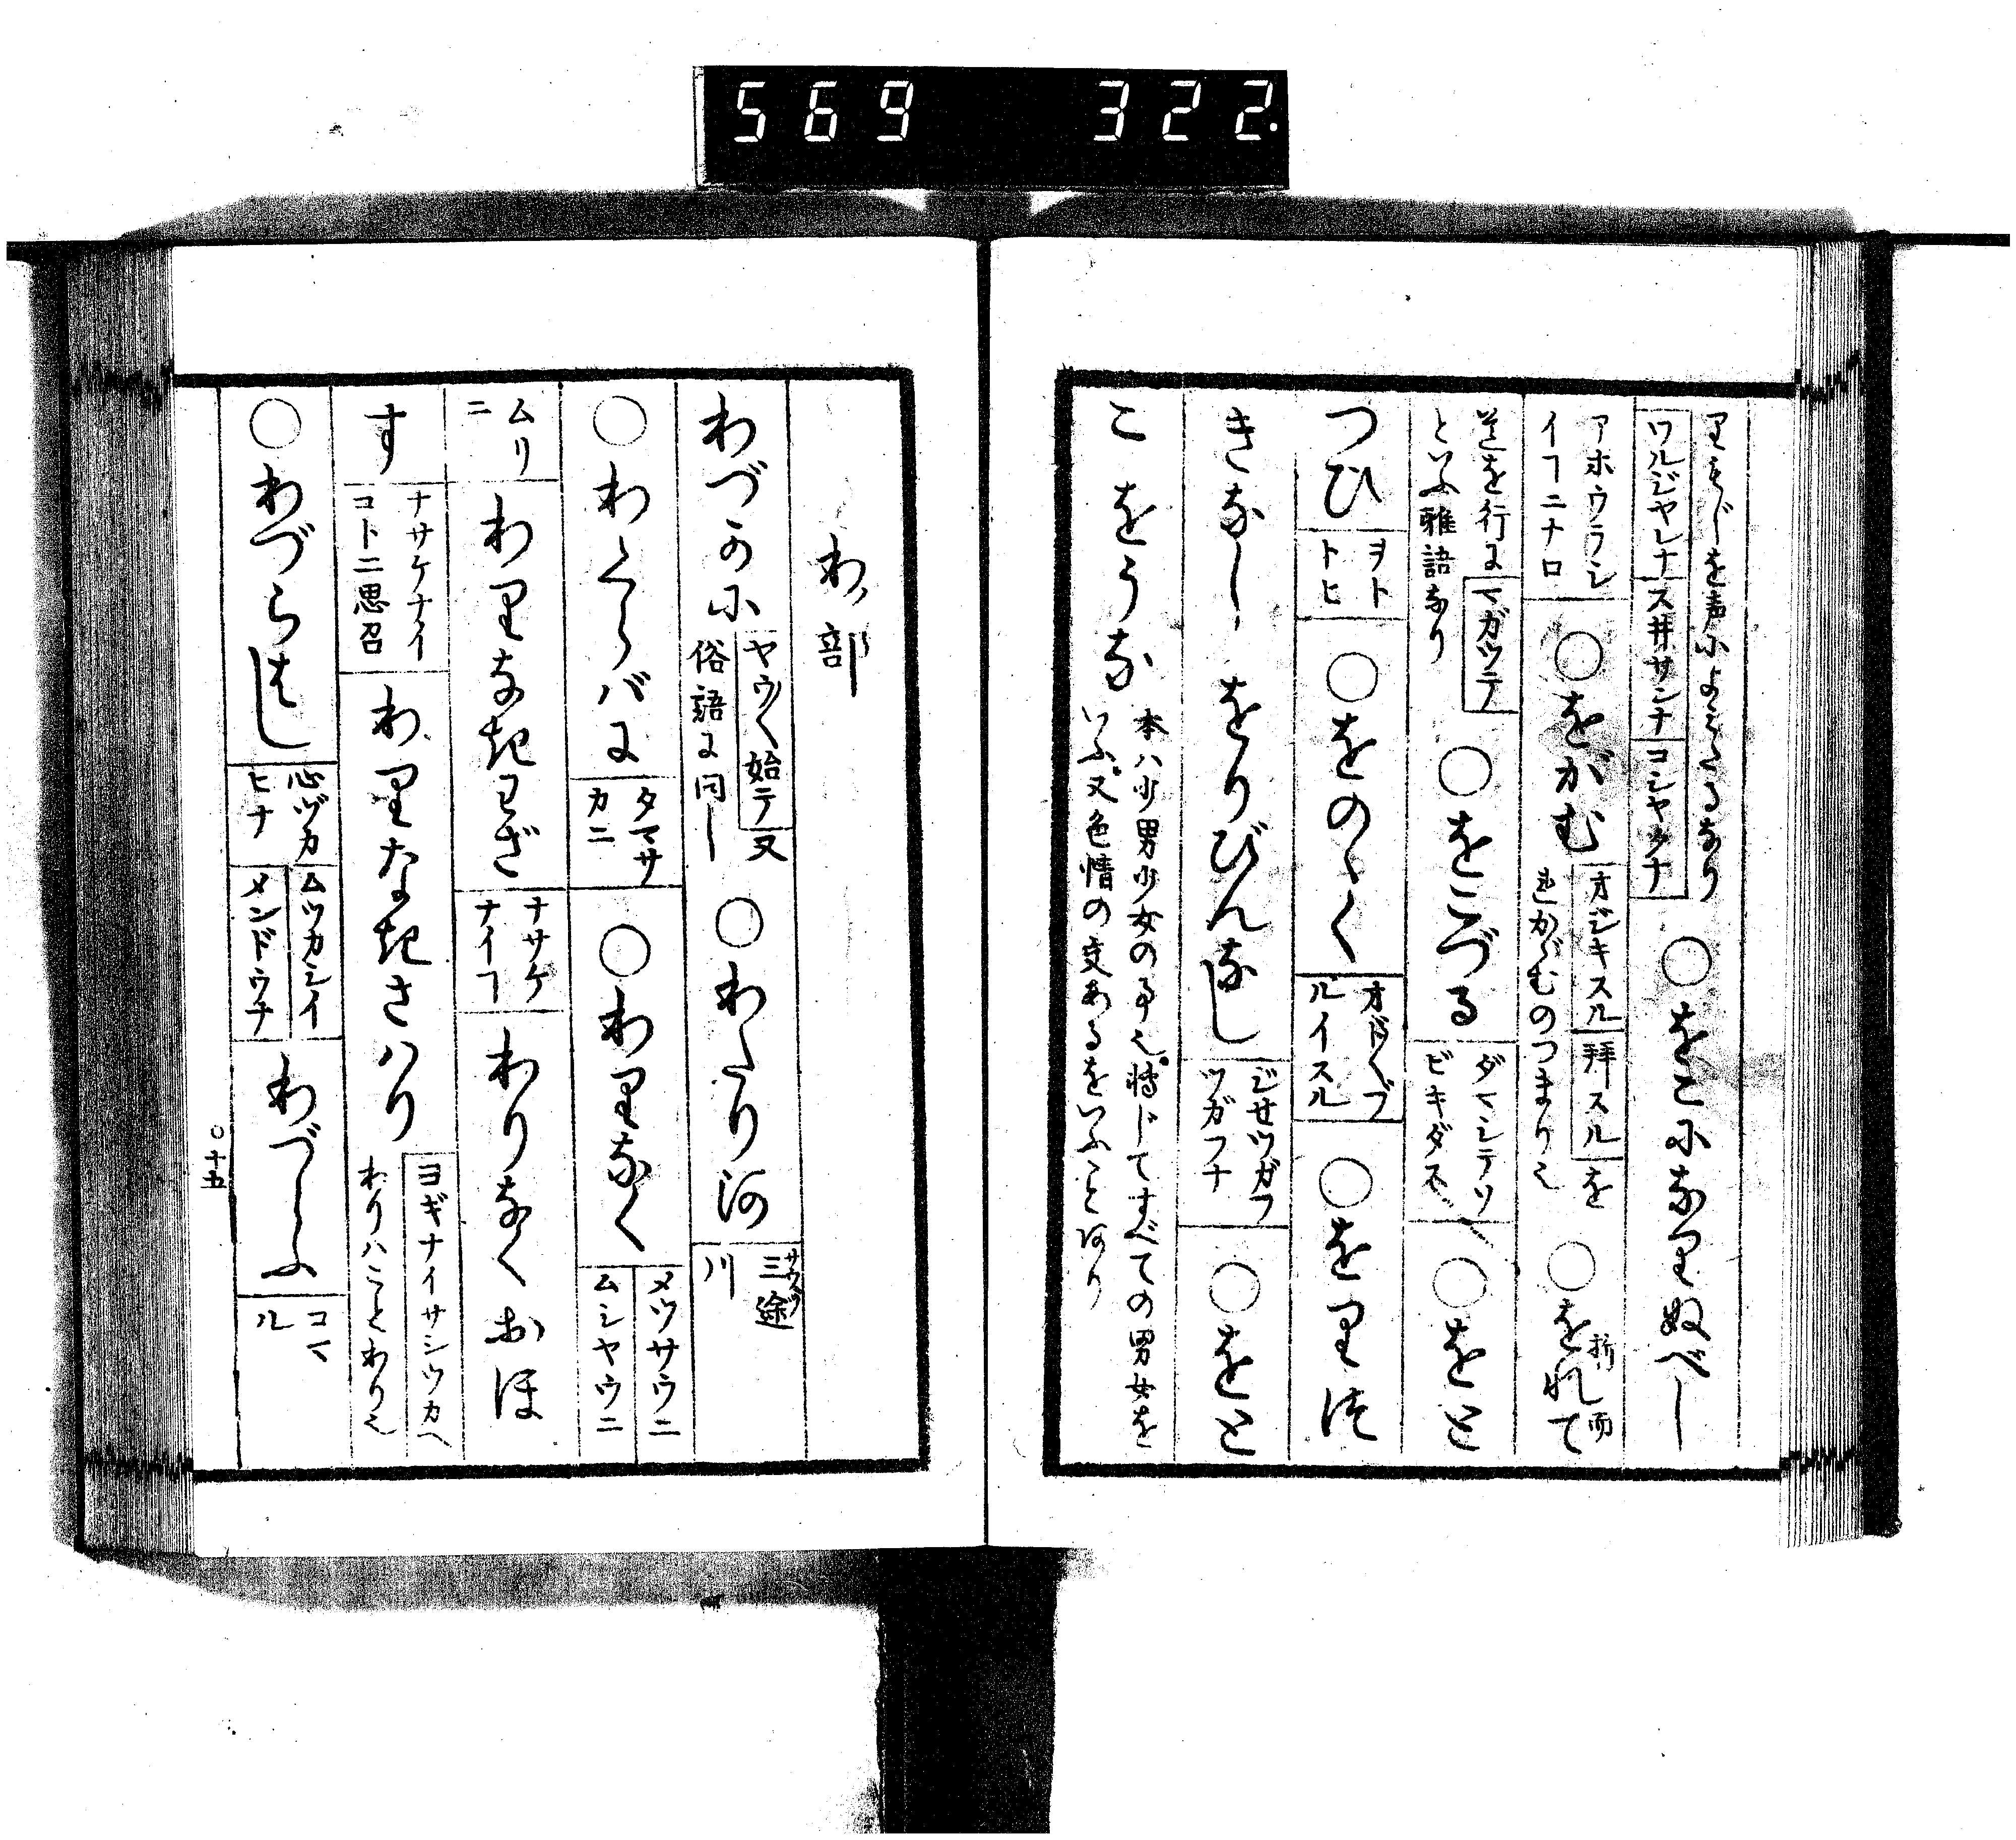 569 322.
りもじを声によみたるなり
ワルジヤレナ ス井サンナ コシヤクナ ○をこになりぬべし
アホウラシイコニナロ ○をがむ オジキスル 拝スル を
をかゞむのつまり也 ○をれて 折而
道を行に マガツテ
といふ雅語なり ○をこづる ダマシテヲビキダス ○をと
つひ ヲトトヒ ○をのゝく オドヘブルイスル ○をりは
きなし をりびんなし ジセツガフツガフナ ○をと
こをうな 本ハ少男少女の事也転じてすべての男女を
いふ又色情の交あるをいふことあり
わ部
わづかに ヤウ〳〵始テ 又
俗語に同し ○わたり河 三途川 サウヅ
○わくらバに タマサカニ ○わりなく メツサウニ ムシヤウニ
ムリニ わりなきわざ ナサケナイコ わりなくおほ
す ナサケナイコトニ思召 わりなきさハり ヨギナイサシツカヘ
わりハことわり也
○わづらはし 心ヅカヒナ ムツカシイ メンドウナ わづらふ コマル
○十五